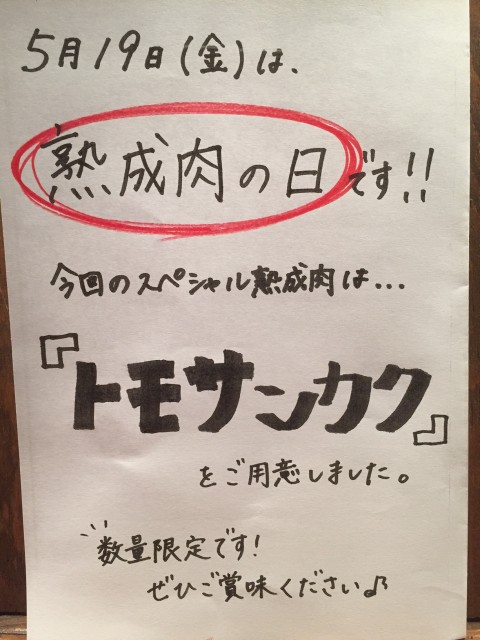 5月19日(金)は、
熟成肉の日です!!
今回のスペシャル熟成肉は...
『トモサンカク』
をご用意しました。
数量限定です!
ぜひご賞味ください♪